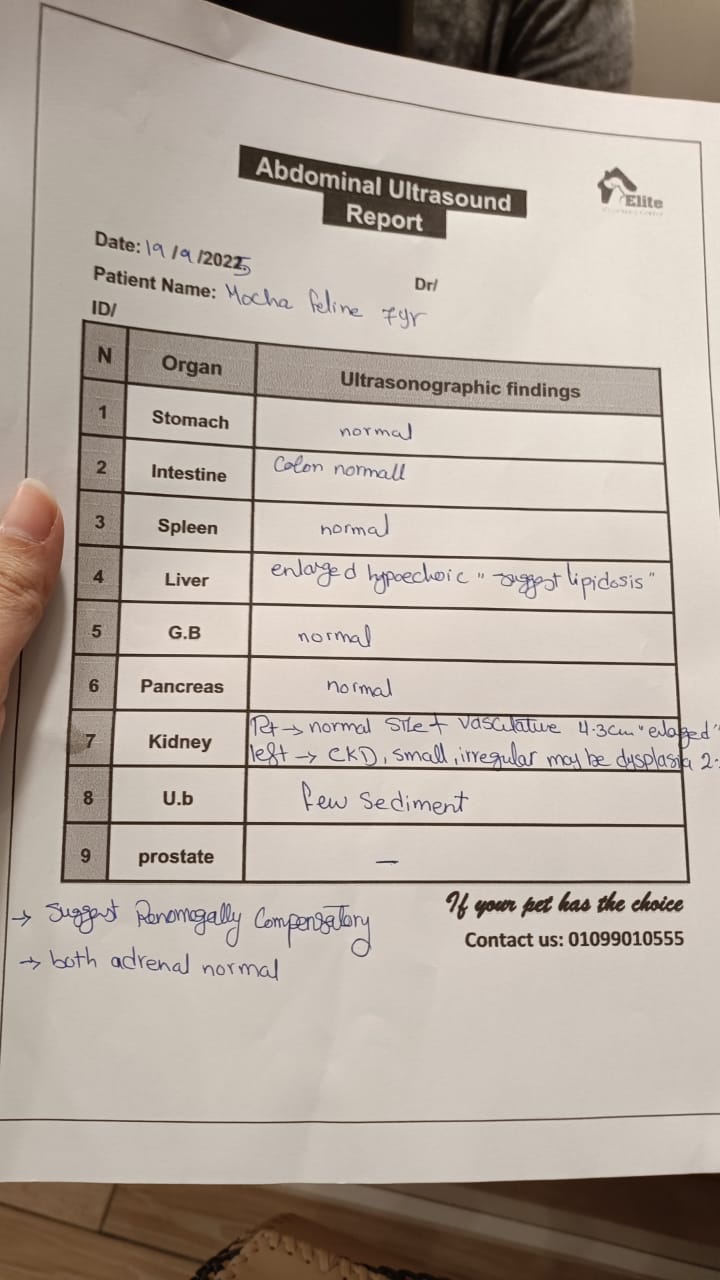 Abdominal Ultrasound
Report
Elite
Date: 19/9/2025
Dr/
Patient Name: Mocha feline 7yr
ID/
N Organ Ultrasonographic findings
1 Stomach normal
2 Intestine Colon normall
3 Spleen normal
4 Liver enlarged hypoechoic "suggest lipidosis"
5 G.B normal
6 Pancreas normal
7 Kidney Rt → normal size + vasculative 4.3cm "enlaged"
left → CKD, small, irregular may be dysplasia 2.
8 U.b few sediment
9 prostate —
→ suggest Renomegally Compensatory
→ both adrenal normal
If your pet has the choice
Contact us: 01099010555